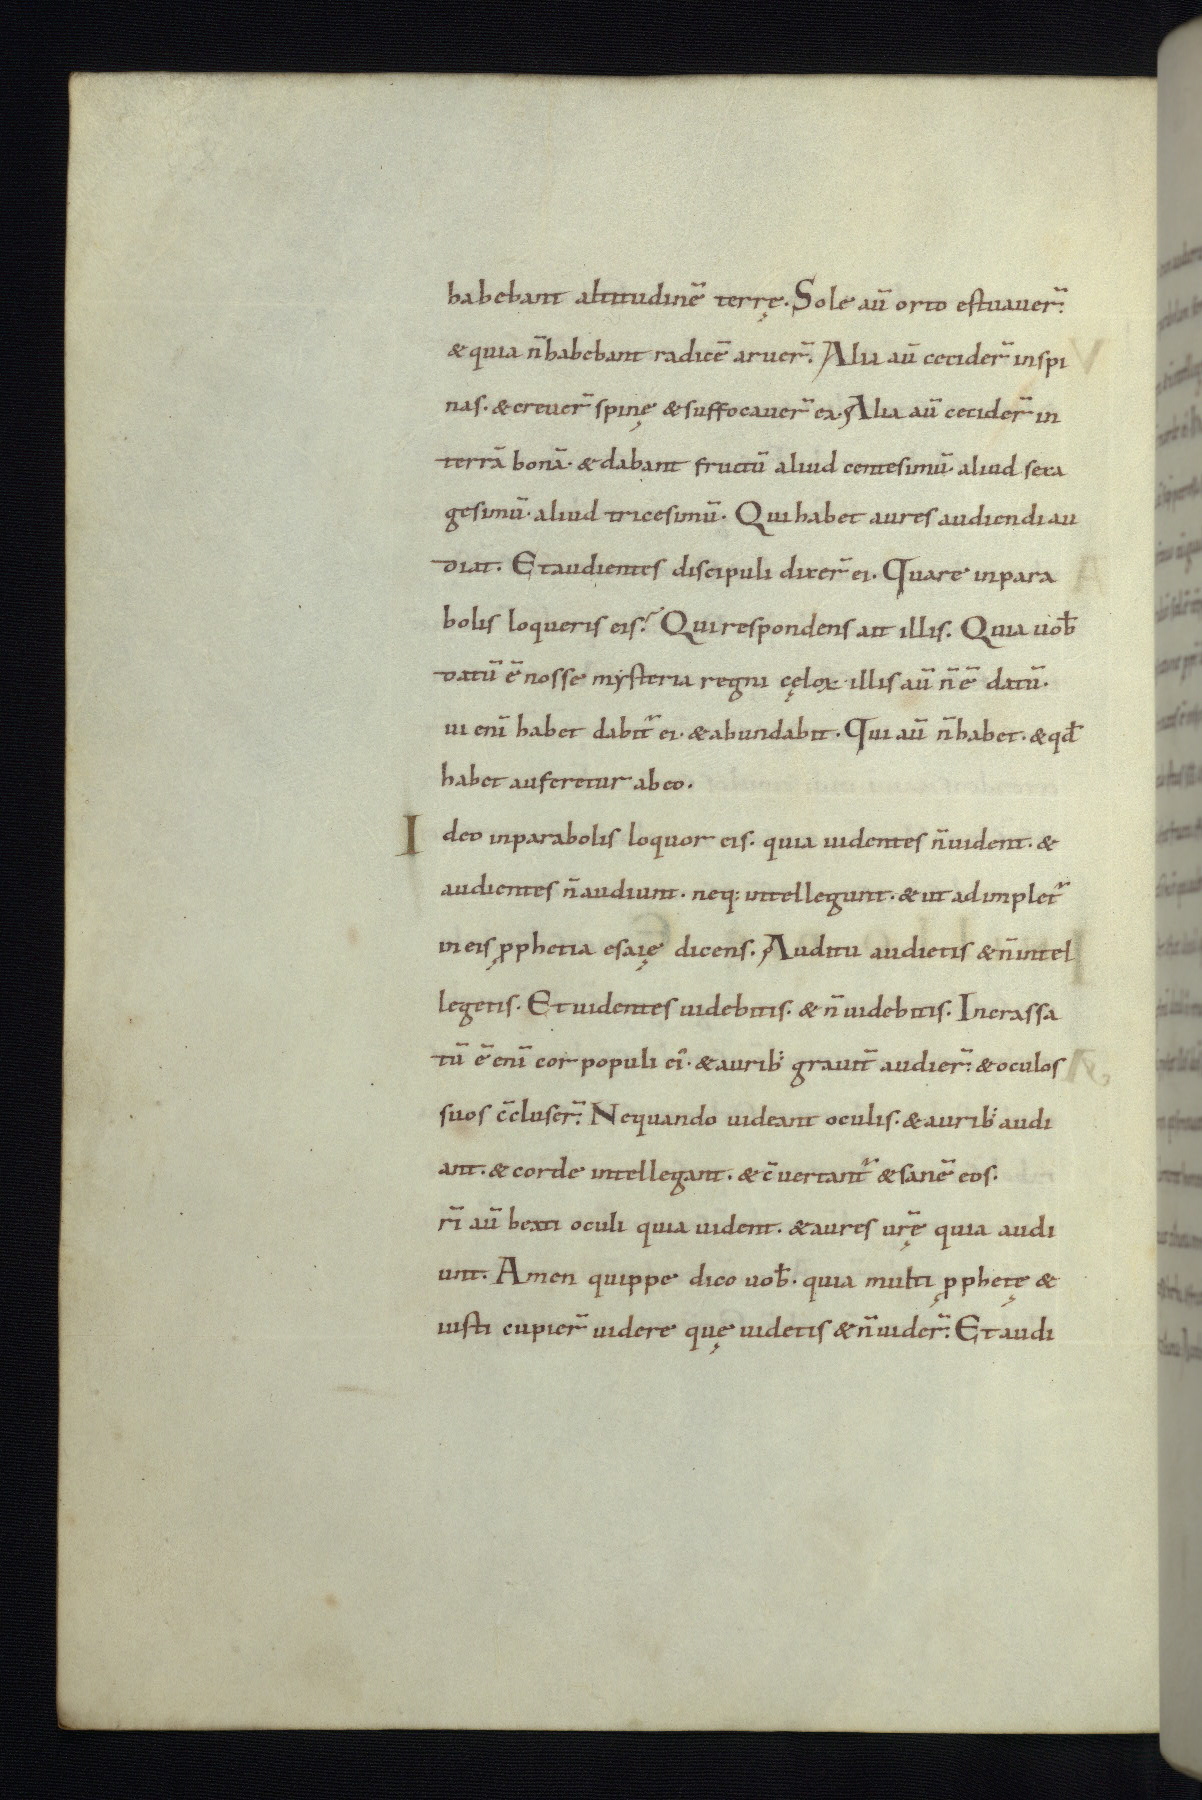 habebant altitudinē terrę. Sole aū orto estuauer̄.
& quia n̄ habebant radicē aruer̄. Alia aū cecider̄ in spi
nas. & creuer̄ spinę & suffocauer̄ ea. Alia aū cecider̄ in
terrā bonā. & dabant fructū aliud centesimū. aliud sexa
gesimū. aliud tricesimū. Qui habet aures audiendi au
diat. Et audientes discipuli dixer̄ ei. Quare in para
bolis loqueris eis? Qui respondens ait illis. Quia uob̄
datū ē nosse mysteria regni cęloꝝ. illis aū n̄ ē datū.
ui eni̅ habet dabit̄ ei. & abundabit. Qui aū n̄ habet. & qd̄
habet auferetur ab eo.
Ideo in parabolis loquor eis. quia uidentes n̄ uident. &
audientes n̄ audiunt. neq; intellegunt. & ut adimplet̄
in eis ꝓphetia esaię dicens. Auditu audietis & n̄ intel
legetis. Et uidentes uidebitis. & n̄ uidebitis. Incrassa
tū ē eni̅ cor populi ei᾽. & aurib᾽ grauit̄ audier̄. & oculos
suos c̄cluser̄. Nequando uideant oculis. & aurib᾽ audi
ant. & corde intellegant. & c̄uertant̄ & sanē eos.
ri̅ aū beati oculi quia uident. & aures ur̄ę quia audi
unt. Amen quippe dico uob̄. quia multi ꝓphetę &
iusti cupier̄ uidere quę uidetis & n̄ uider̄. Et audi